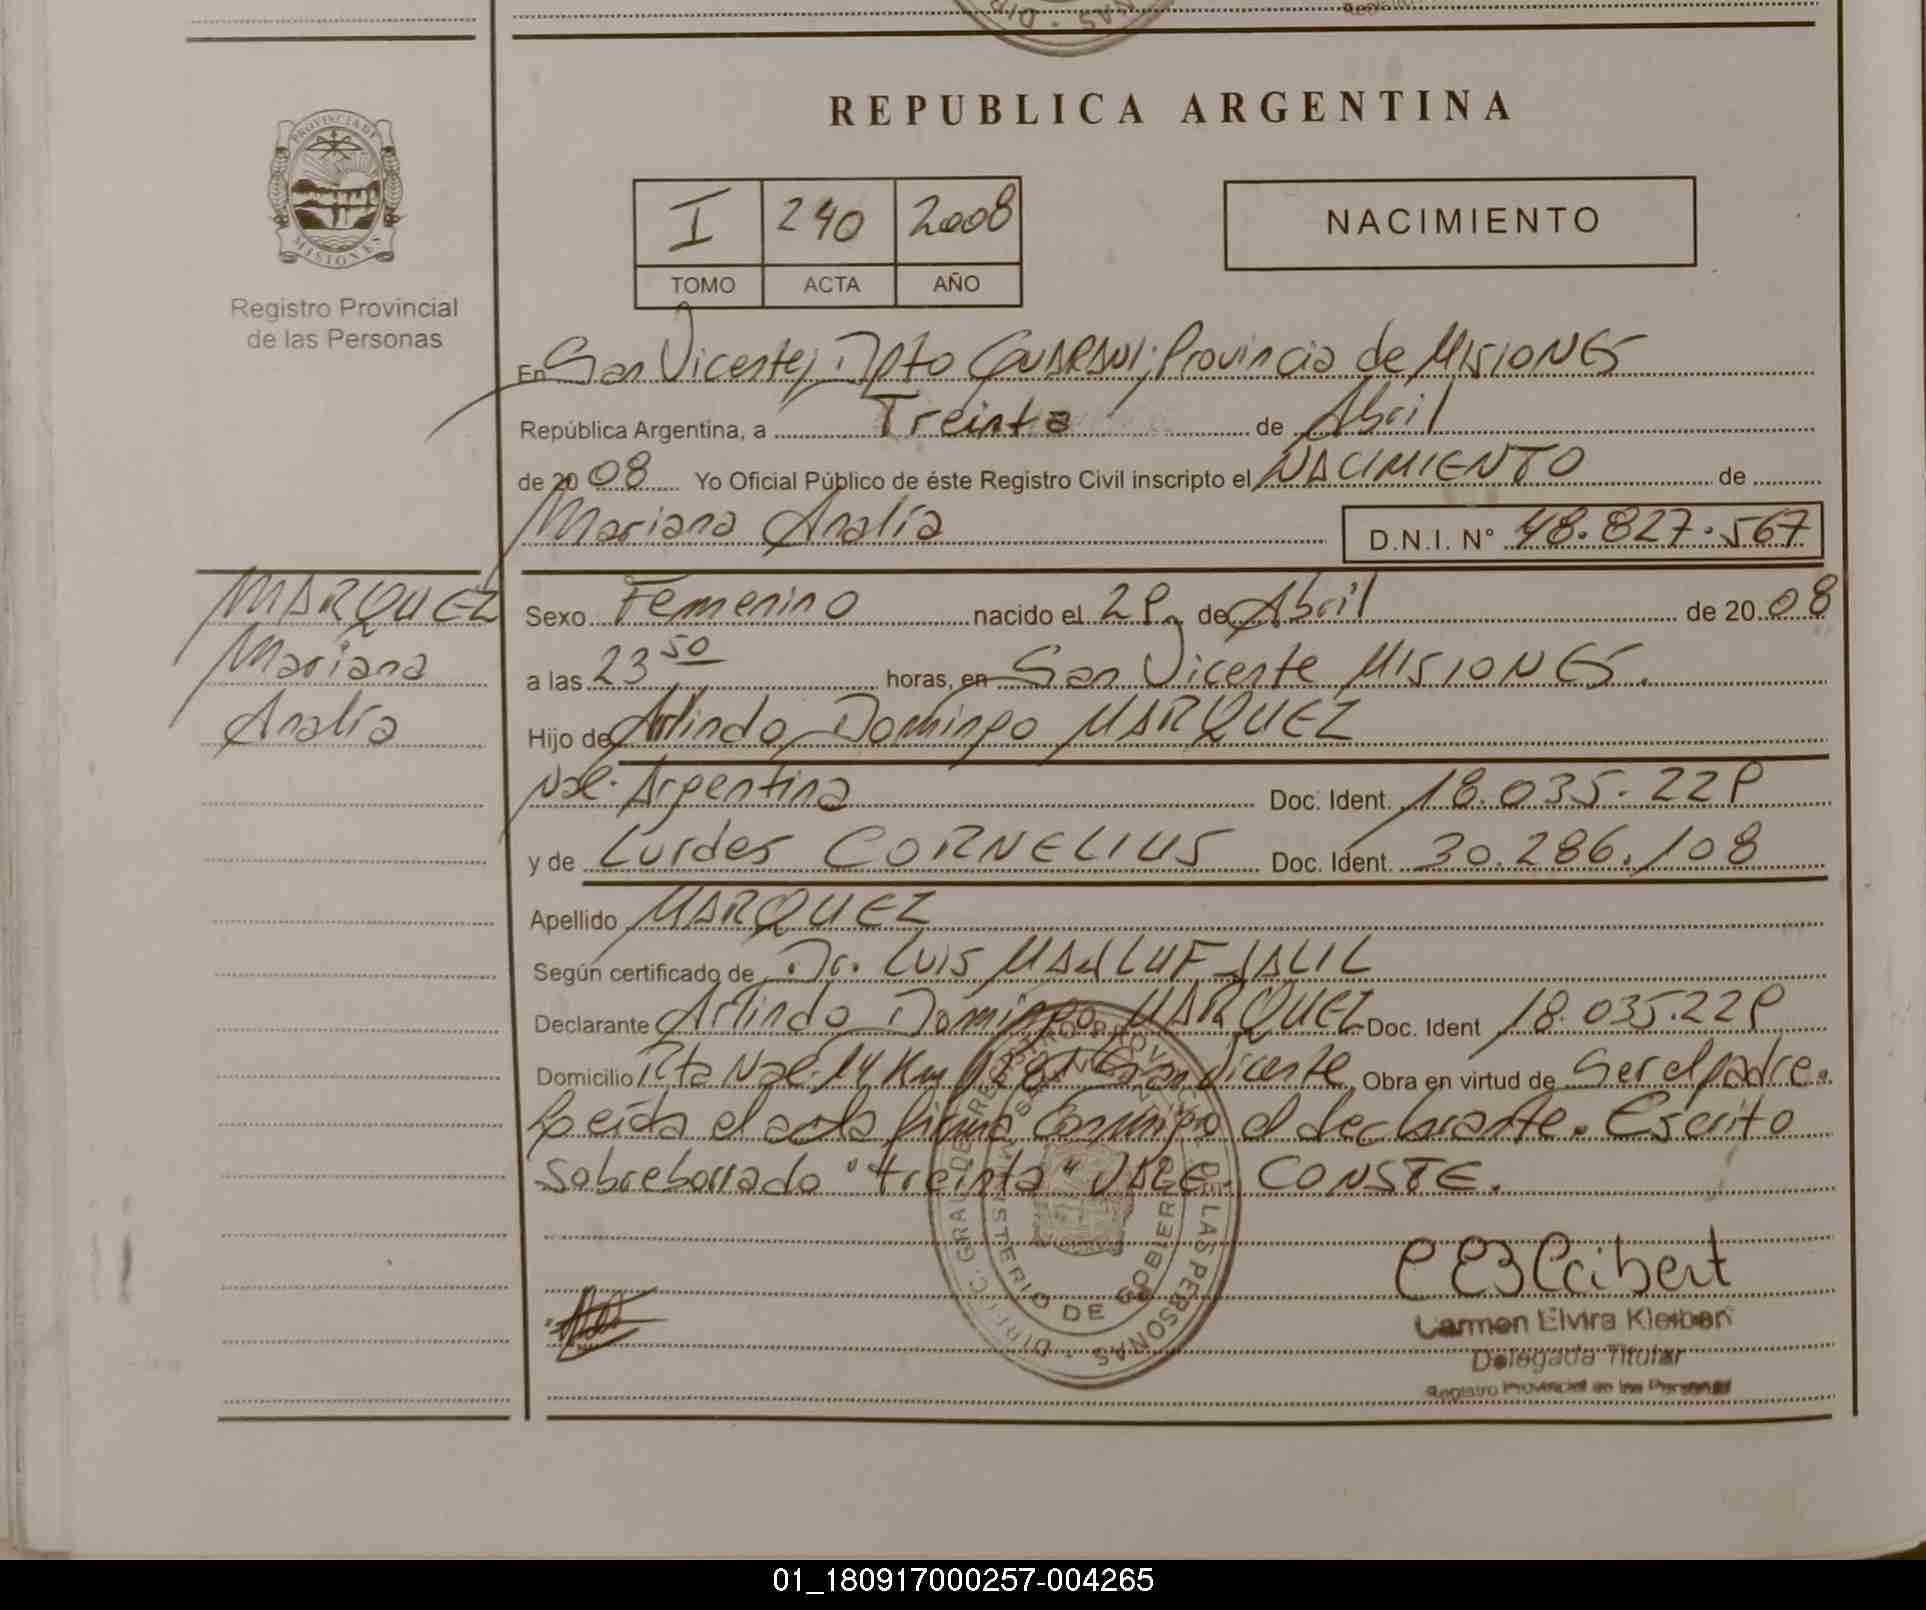 REPUBLICA ARGENTINA
PROVINCIA DE
MISIONES
Registro Provincial
de las Personas
I 240 2008
TOMO ACTA AÑO
NACIMIENTO
En San Vicente, Dpto GUARANI; Provincia de MISIONES
República Argentina, a Treinta de Abril
de 2008 Yo Oficial Público de éste Registro Civil inscripto el NACIMIENTO de
Mariana Analía D.N.I. N° 48.827.567
MARQUEZ
Mariana
Analía
Sexo Femenino nacido el 29 de Abril de 2008
a las 23 50 horas, en San Vicente MISIONES.
Hijo de Arlindo Domingo MARQUEZ
Nac. Argentina Doc. Ident. 18.035.229
y de Lurdes CORNELIUS Doc. Ident. 30.286.108
Apellido MARQUEZ
Según certificado de Dr. LUIS MALLUF JALIL
Declarante Arlindo Domingo MARQUEZ Doc. Ident 18.035.229
Domicilio Rta Nac. 14 Km San Vicente Obra en virtud de Ser el padre.
Leída el acta firma conmigo el declarante. Escrito
sobreborrado "treinta" VALE. CONSTE.
DIREC. GRAL. DE REGISTRO PROVINCIAL DE LAS PERSONAS
MINISTERIO DE GOBIERNO
Carmen Elvira Kleibert
Delegada Titular
Registro Provincial de las Personas
01_180917000257-004265